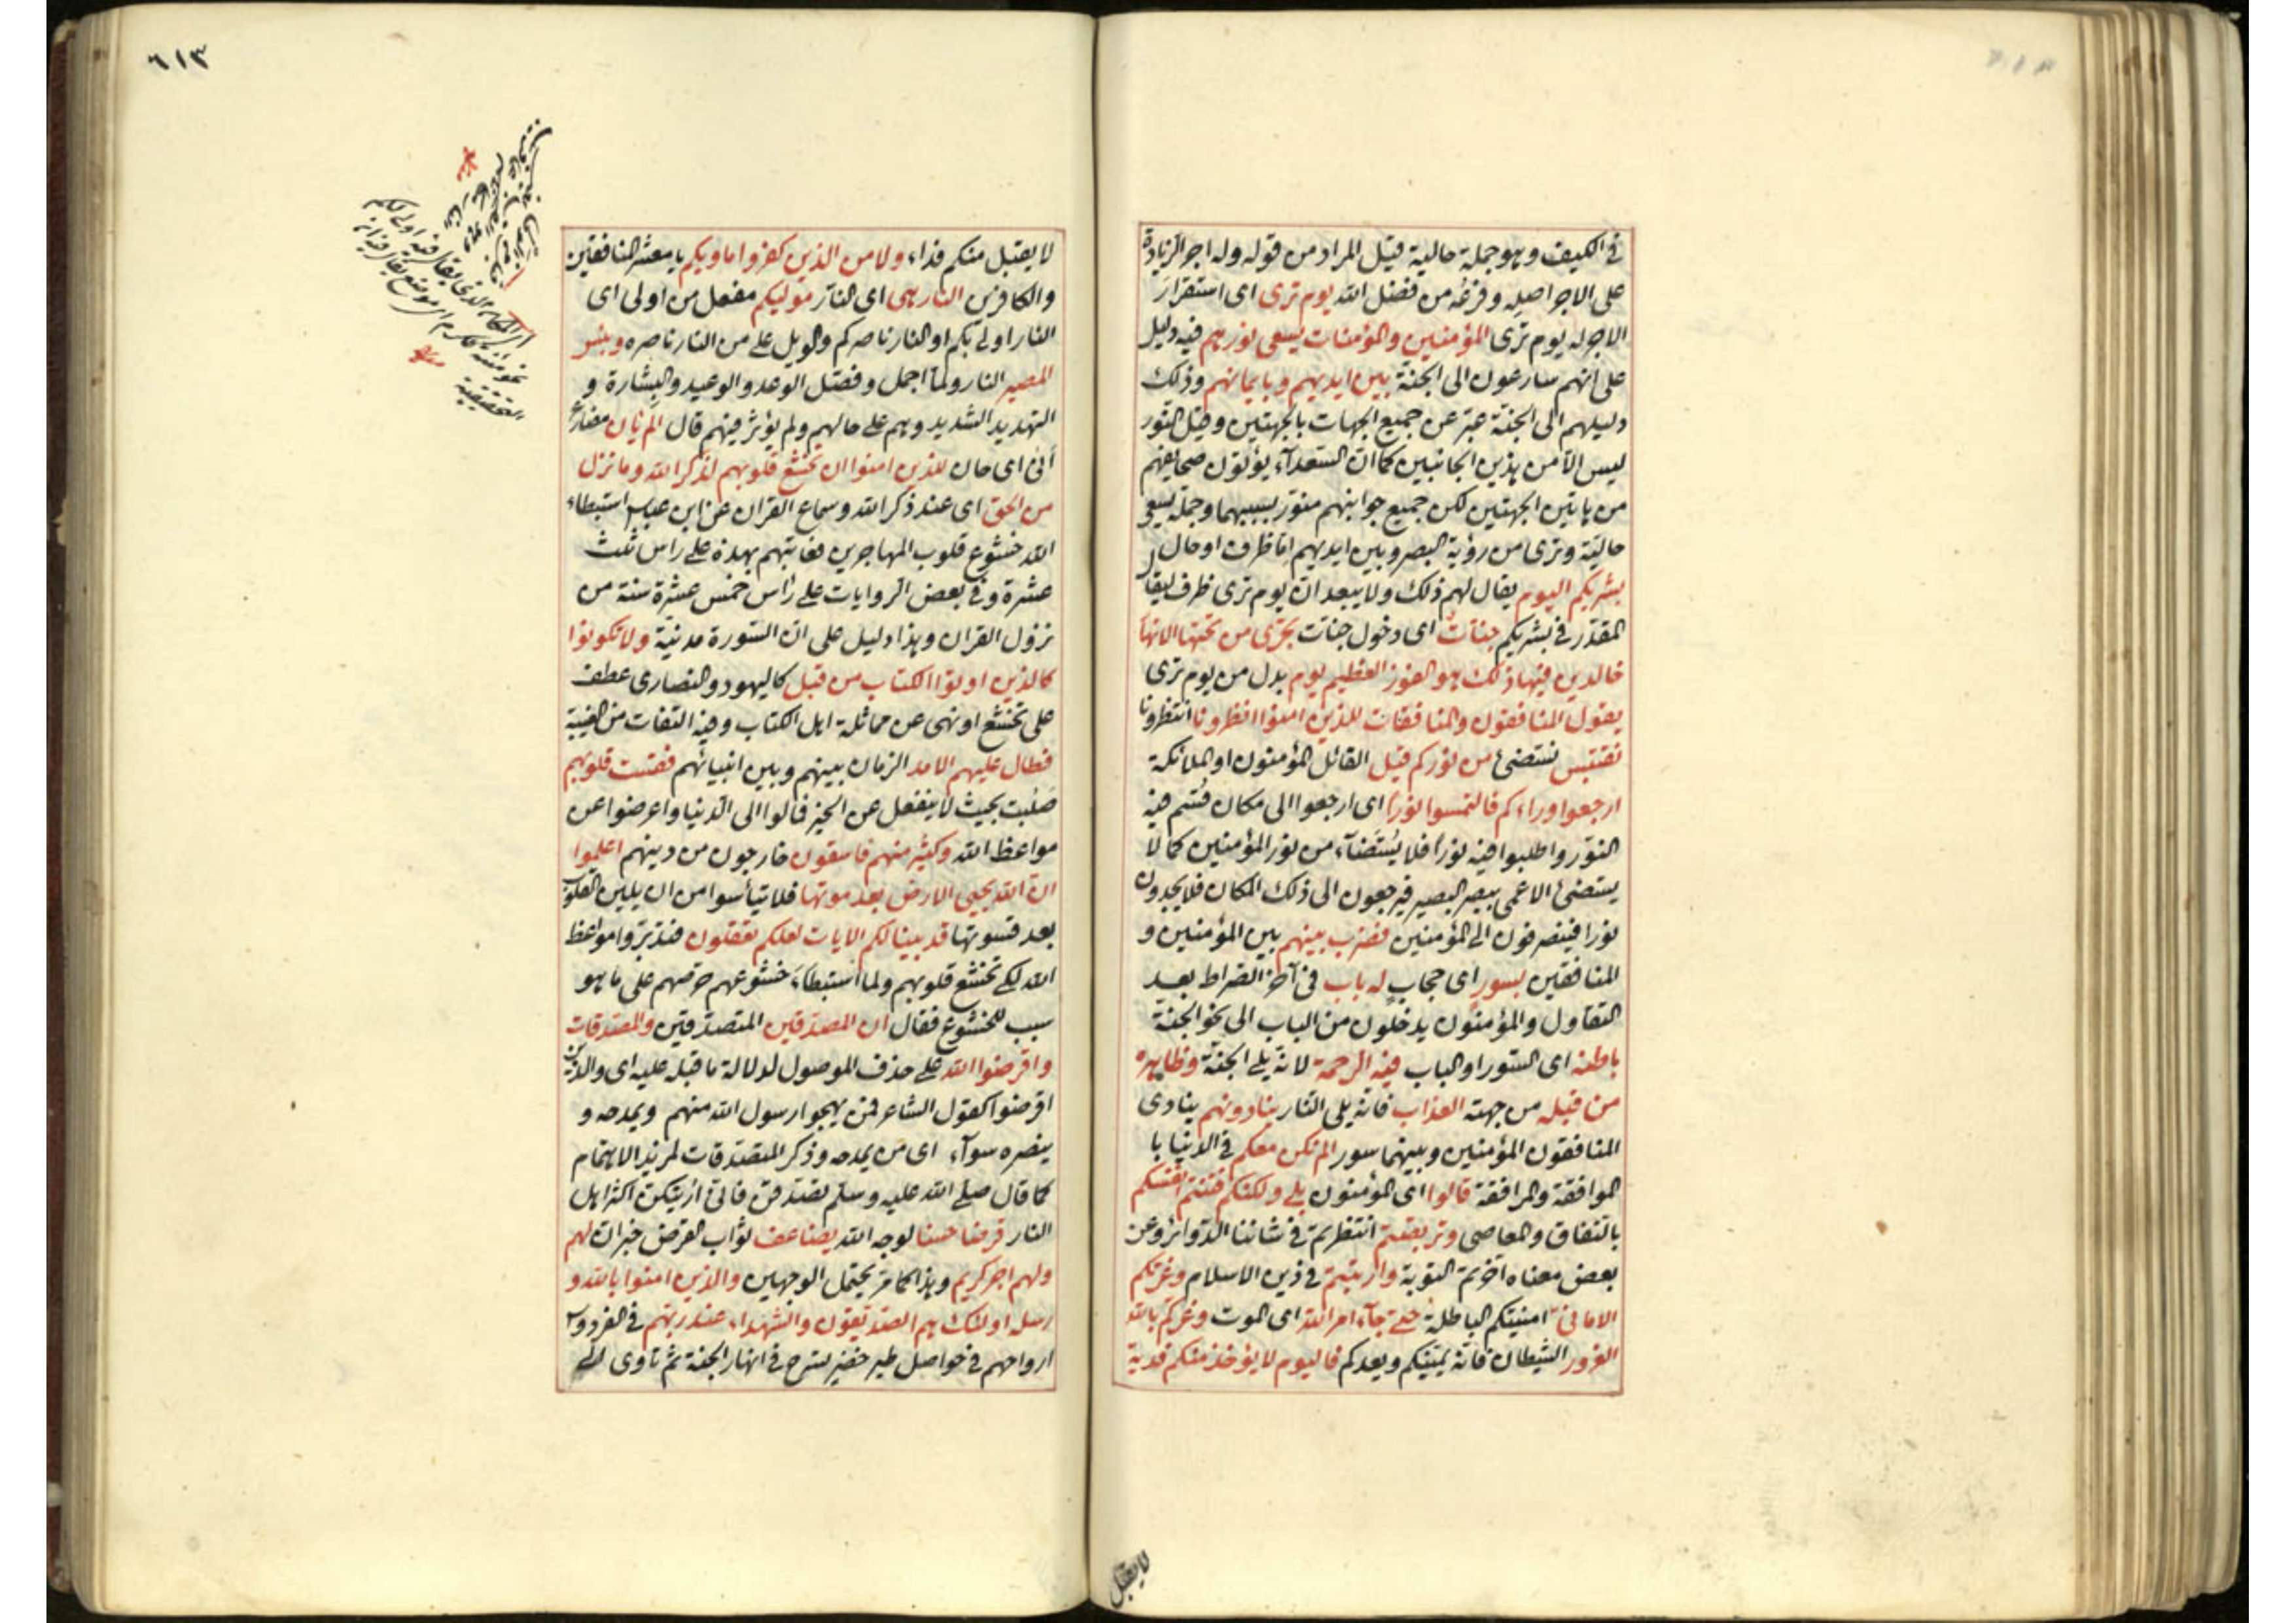 في الكيف وهو جملة حالية قيل المراد من قوله وله اجر الزيادة
على الاجر اصله وفرعه من فضل الله يوم ترى اى استقرار
الاجر له يوم ترى المؤمنين والمؤمنات يسعى نورهم فيه دليل
على انهم سارعون الى الجنة بين ايديهم وبايمانهم وذلك
دليلهم الى الجنة عبّر عن جميع الجهات بالجهتين وقيل النور
ليس الّا من هذين الجانبين كما ان السعدآء يؤتون صحايفهم
من هاتين الجهتين لكن جميع جوانبهم منور بسببهما وجملة يسعى
حالية وترى من رؤية البصر وبين ايديهم امّا ظرف او حال
بشريكم اليوم يقال لهم ذلك ولا يبعد ان يوم ترى ظرف ليقال
المقدّر في بشريكم جنات اى دخول جنات تجرى من تحتها الانهار
خالدين فيها ذلك هو الفوز العظيم يوم بدل من يوم ترى
يقول المنافقون والمنافقات للذين امنوا انظرونا انتظرونا
نقتبس نستضئ من نوركم قيل القائل المؤمنون او الملائكة
ارجعوا وراءكم فالتمسوا نورا اى ارجعوا الى مكان قُسّم فيه
النور واطلبوا فيه نورا فلا يُستَضآء من نور المؤمنين كما لا
يستضئ الاعمى ببصر البصير فيرجعون الى ذلك المكان فلا يجدون
نورا فينصرفون الى المؤمنين فضرب بينهم بين المؤمنين و
المنافقين بسور اى حجاب له باب في آخر الصراط بعد
التقاول والمؤمنون يدخلون من الباب الى نحو الجنة
باطنه اى السور او الباب فيه الرحمة لانه يلى الجنة وظاهره
من قبله من جهته العذاب فانه يلى النار ينادونهم ينادى
المنافقون المؤمنين وبينهما سور الم نكن معكم في الدنيا با
لموافقة والمرافقة قالوا اى المؤمنون بلى ولكنكم فتنتم انفسكم
بالنفاق والمعاصى وتربصتم انتظرتم في شاننا الدوائر وعن
بعض معناه اخرتم التوبة وارتبتم في دين الاسلام وغرتكم
الامانى امنيتكم الباطلة حتى جآء امر الله اى الموت وغركم بالله
الغرور الشيطان فانه يمنيكم ويعدكم فاليوم لا يؤخذ منكم فدية
لا يقبل
٦١٣
لا يقبل منكم فداء ولا من الذين كفروا ماويكم يا معشر المنافقين
والكافرين النار هى اى النار موليكم مفعل من اولى اى
النار اولى بكم او النار ناصركم والويل على من النار ناصره وبئس
المصير النار ولمّا اجمل وفصّل الوعد والوعيد والبشارة و
التهديد الشديد وهم على حالهم ولم يؤثر فيهم قال الم يأن مضارع
أنى اى حان للذين امنوا ان تخشع قلوبهم لذكر الله وما نزل
من الحق اى عند ذكر الله وسماع القران عن ابن عباس استبطاء
الله خشوع قلوب المهاجرين فعاتبهم بهذه على راس ثلث
عشرة وفي بعض الروايات على رأس خمس عشرة سنة من
نزول القران وهذا دليل على ان السورة مدنية ولا تكونوا
كالذين اوتوا الكتاب من قبل كاليهود والنصارى عطف
على تخشع او نهى عن مماثلة اهل الكتاب وفيه التفات من الغيبة
فطال عليهم الامد الزمان بينهم وبين انبيائهم فقست قلوبهم
صَلُبت بحيث لا ينفعل عن الخير فمالوا الى الدنيا واعرضوا عن
مواعظ الله وكثير منهم فاسقون خارجون من دينهم اعلموا
ان الله يحيى الارض بعد موتها فلا تيأسوا من ان يلين القلوب
بعد قسوتها قد بينا لكم الايات لعلكم تعقلون فتدبّروا مواعظ
الله لكى تخشع قلوبهم ولما استبطاء خشوعهم حرّضهم على ما هو
سبب للخشوع فقال ان المصدقين المتصدقين والمصدقات
واقرضوا الله على حذف الموصول لدلالة ما قبله عليه اى والذين
اقرضوا كقول الشاعر فمن يهجو رسول الله منهم ويمدحه و
ينصره سوآء اى من يمدحه وذكر المتصدقات لمزيد الاهتمام
كما قال صلى الله عليه وسلم تصدقن فانى اريتكن اكثر اهل
النار قرضا حسنا لوجه الله يضاعف ثواب القرض خبر ان لهم
ولهم اجر كريم وهذا كما مر يحتمل الوجهين والذين امنوا بالله و
رسله اولئك هم الصديقون والشهداء عند ربهم في الفردوس
ارواحهم في حواصل طير خضر تسرح في انهار الجنة ثم تاوى الى